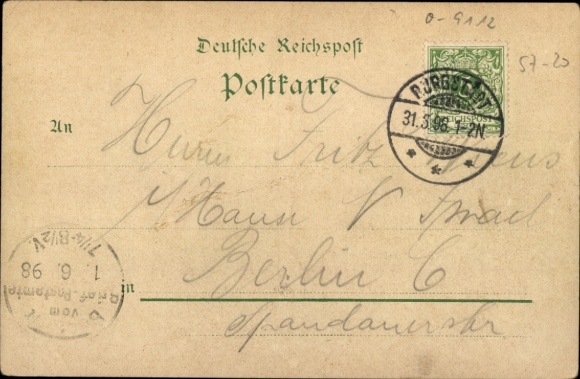 0-9112
57-20
Deutsche Reichspost
Postkarte
BURGSTÄDT
31.5.98. 1-2N
REICHSPOST
An
Herrn Fritz
Haus N. Israel
in Berlin C
Spandauerstr
7¼-8½V.
1. 6. 98
Brief-Postamte
vom